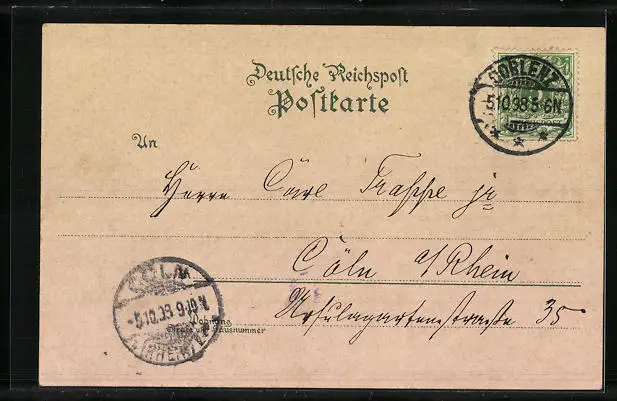 Deutsche Reichspost
Postkarte
COBLENZ
5.10.98.5-6N
An
Herrn Carl Trappe jr
Cöln a/Rhein
Ursulagartenstraße 35
CÖLN
5.10.98.9-10N
(RHEIN)
Wohnung
Straße und Hausnummer